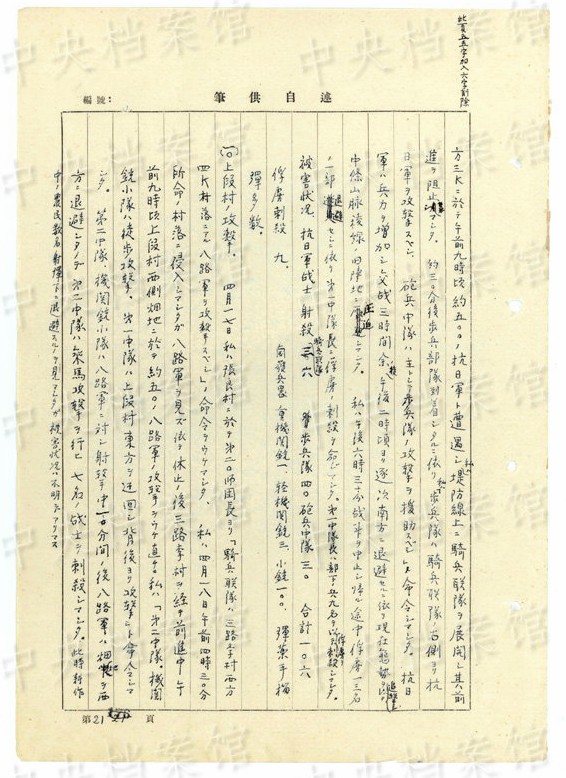 此頁五五字加入六字削除
編號：
述自供筆
方三Kニ於テ午前九時頃約五〇〇ノ抗日軍ト遭遇シ私ハ堤防線上ニ騎兵联隊ヲ展開シ其前
進ヲ阻止シマシタ。約三〇分後歩兵部隊到着シタルニ依リ私ハ歩兵隊ハ騎兵联隊ノ右側ヨリ抗
日軍ヲ攻撃スベシ 砲兵中隊ハ主トシテ歩兵隊ノ攻撃ヲ援助スベシト命令シマシタ。抗日
軍ハ兵力ヲ増加シ交战三時間余 午後二時頃ヨリ逐次南方ニ退避セルニ依リ現在態勢ヲ以テ追撃シ
中條山脈稜線ノ旧陣地ニ圧迫シマシタ。私ハ午後六時三十分战斗ヲ中止シ帰ル途中俘虜一三名
ノ一部退避セルニ依リ第一中隊長ニ俘虜ノ刺殺ヲ命ジマシタ。第一中隊長ハ部下ノ兵九名ヲ以テ俘虜ヲ刺殺シマシタ。
被害状況 抗日軍战士 射殺 騎兵联隊三六 歩兵隊四〇 砲兵中隊三〇 合計一〇六
俘虜刺殺 九、 鹵獲兵器 重機関銃一、軽機関銃三 小銃一〇〇、 彈藥手榴
彈多数。
(一〇)上段村ノ攻撃。 四月一七日私ハ張良村ニ於テ第二〇師団長ヨリ「騎兵联隊ハ三路李村西方
四K村落ニアル八路軍ヲ攻撃スベシ」ノ命令ヲウケマシタ。 私ハ四月一八日午前四時三〇分
所命ノ村落ニ侵入シマシタガ八路軍ヲ見ズ依テ休止ノ後三路李村ヲ経テ前進中午
前九時頃上段村西側畑地ニ於テ約五〇ノ八路軍ノ攻撃ヲウケ直ニ私ハ「第二中隊、機関
銃小隊ハ徒歩攻撃。第一中隊ハ上段村東方ヲ迂回シ背後ヨリ攻撃シト命令シマ
シタ。 第二中隊、機関銃小隊ハ八路軍ニ対シ射撃中一〇分間ノ後八路軍ハ西
方ニ退避シタノデ 第一中隊ハ乘馬攻撃ヲ行ヒ七名ノ战士ヲ刺殺シマシタ。此時耕作
中ノ農民数名射彈下ヲ退避スルノヲ見マシタガ被害状況ハ不明デアリマス
第21頁
中央档案馆